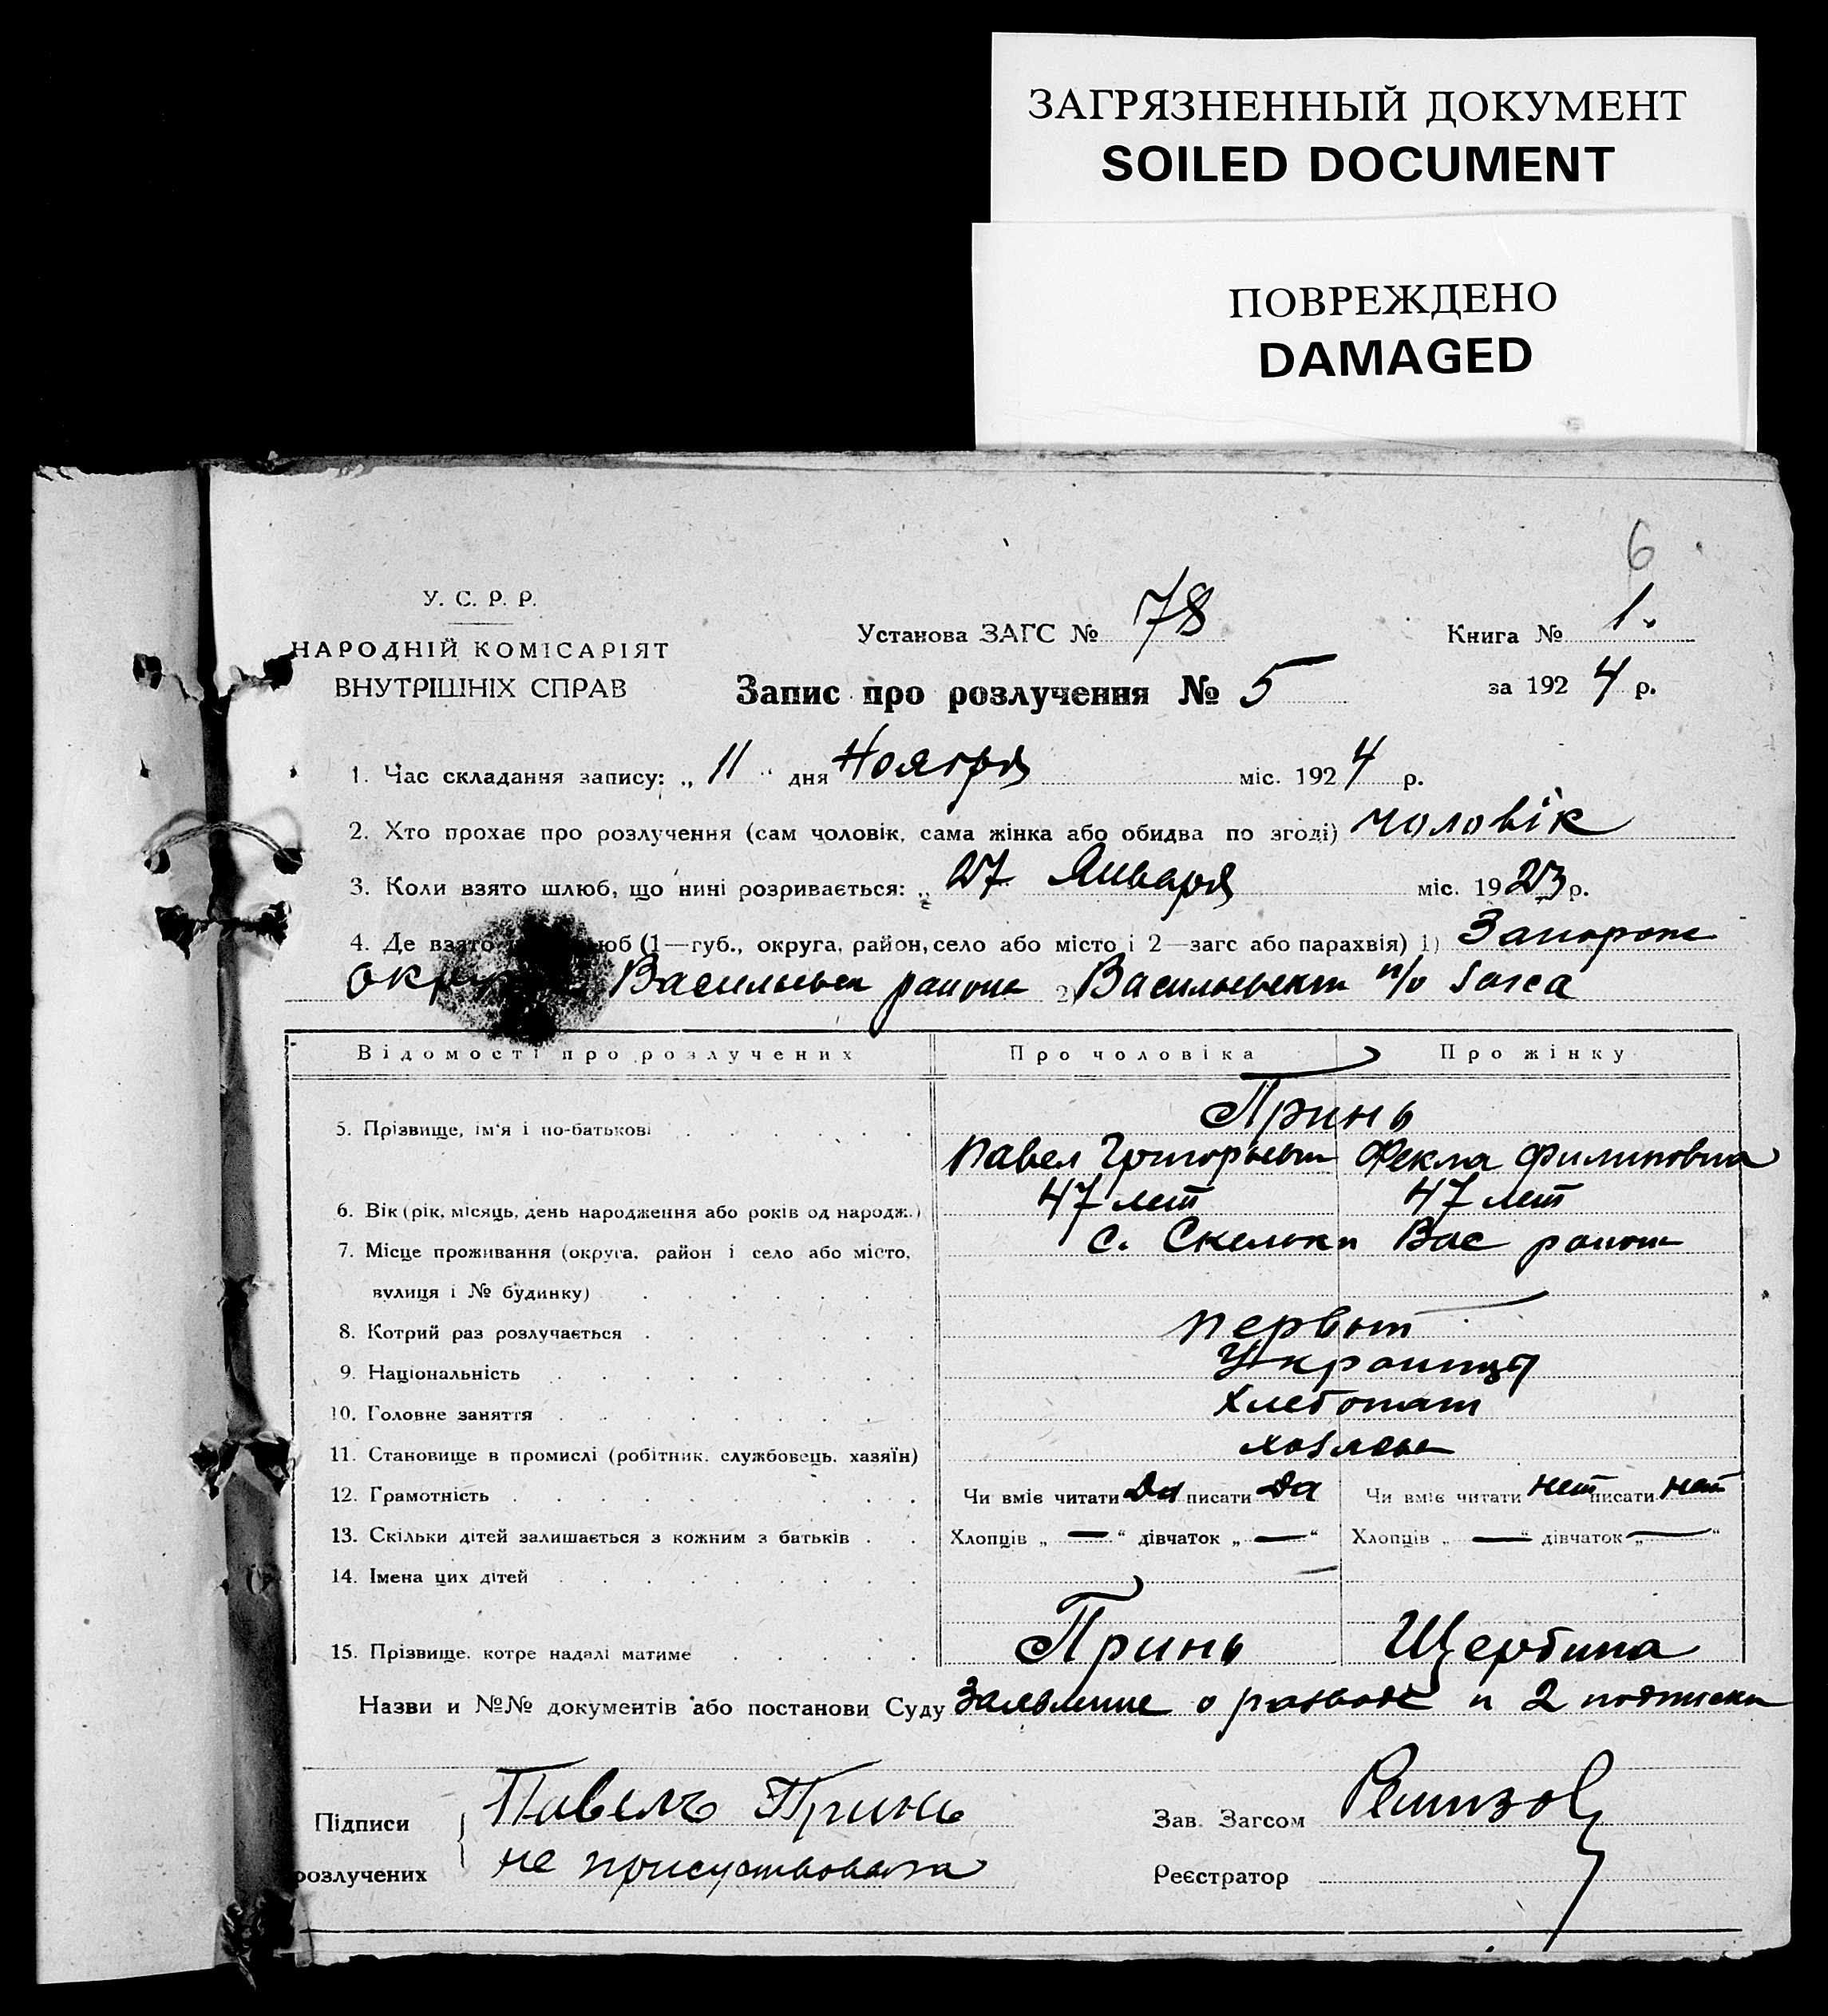 ЗАГРЯЗНЕННЫЙ ДОКУМЕНТ
SOILED DOCUMENT
ПОВРЕЖДЕНО
DAMAGED
6
У. С. Р. Р.
НАРОДНІЙ КОМІСАРІЯТ
ВНУТРІШНІХ СПРАВ
Установа ЗАГС № 78
Книга № 1.
Запис про розлучення № 5
за 1924 р.
1. Час складання запису: „ 11 “ дня Ноября міс. 1924 р.
2. Хто прохає про розлучення (сам чоловік, сама жінка або обидва по згоді) чоловік
3. Коли взято шлюб, що нині розривається: „ 27 Января міс. 1923 р.
4. Де взято юб (1—губ., округа, район, село або місто і 2—загс або парахвія) 1) Запорож
Васильевск района 2) Васильевск п/о Загса
Відомості про розлучених Про чоловіка Про жінку
5. Прізвище, ім'я і по-батькові Принь
Павел Григорьевич Фекла Филиповна
6. Вік (рік, місяць, день народження або років од народж.) 47 лет 47 лет
7. Місце проживання (округа, район і село або місто, с. Скельки Вас района
вулиця і № будинку)
8. Котрий раз розлучається первый
9. Національність Украинцы
10. Головне заняття Хлебопаш
11. Становище в промислі (робітник, службовець, хазяїн) хозяева
12. Грамотність Чи вміє читати Да писати Да Чи вміє читати нет писати нет
13. Скільки дітей залишається з кожним з батьків Хлопців „ — “ дівчаток „ — “ Хлопців „ — “ дівчаток „ — “
14. Імена цих дітей
15. Прізвище, котре надалі матиме Принь Щербина
Назви и №№ документів або постанови Суду Заявление о разводе и 2 подписки
Підписи Павелъ Принь Зав. Загсом
розлучених не присуствовала Реєстратор